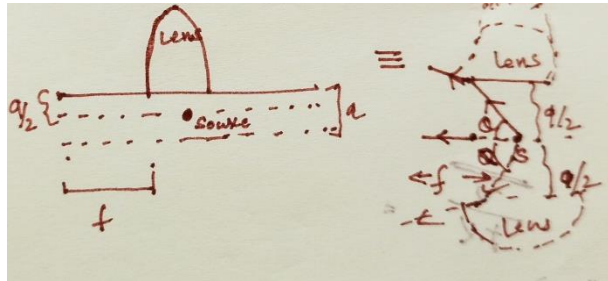 Lens
a/2
Source
a
f
≡
Lens
a/2
θ
θ
S
f
a/2
Lens